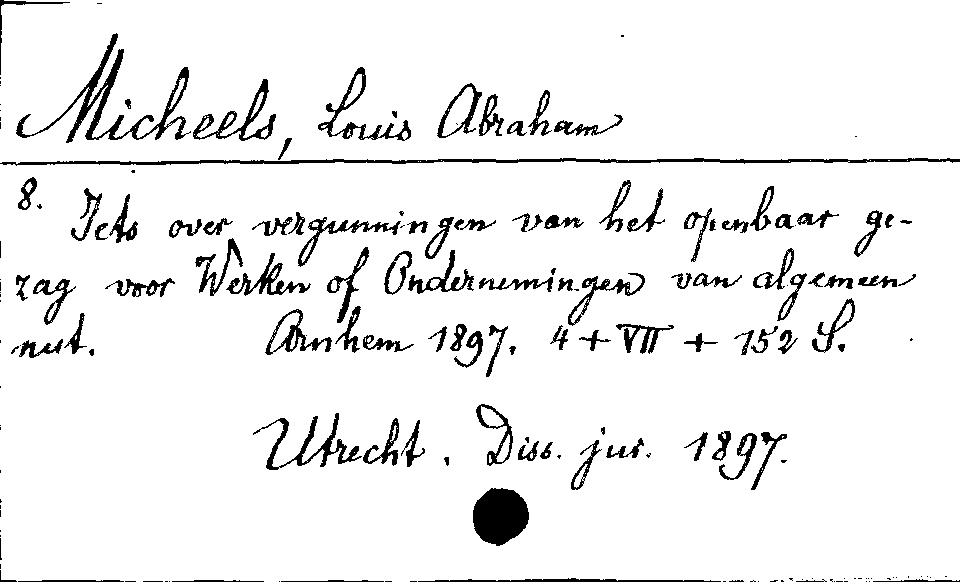 Micheels, Louis Abraham
8.
Iets over vergunningen van het openbaar ge-
zag voor Werken of Ondernemingen van algemeen
nut. Arnhem 1897. 4 + VII + 152 S.
Utrecht. Diss. jur. 1897.